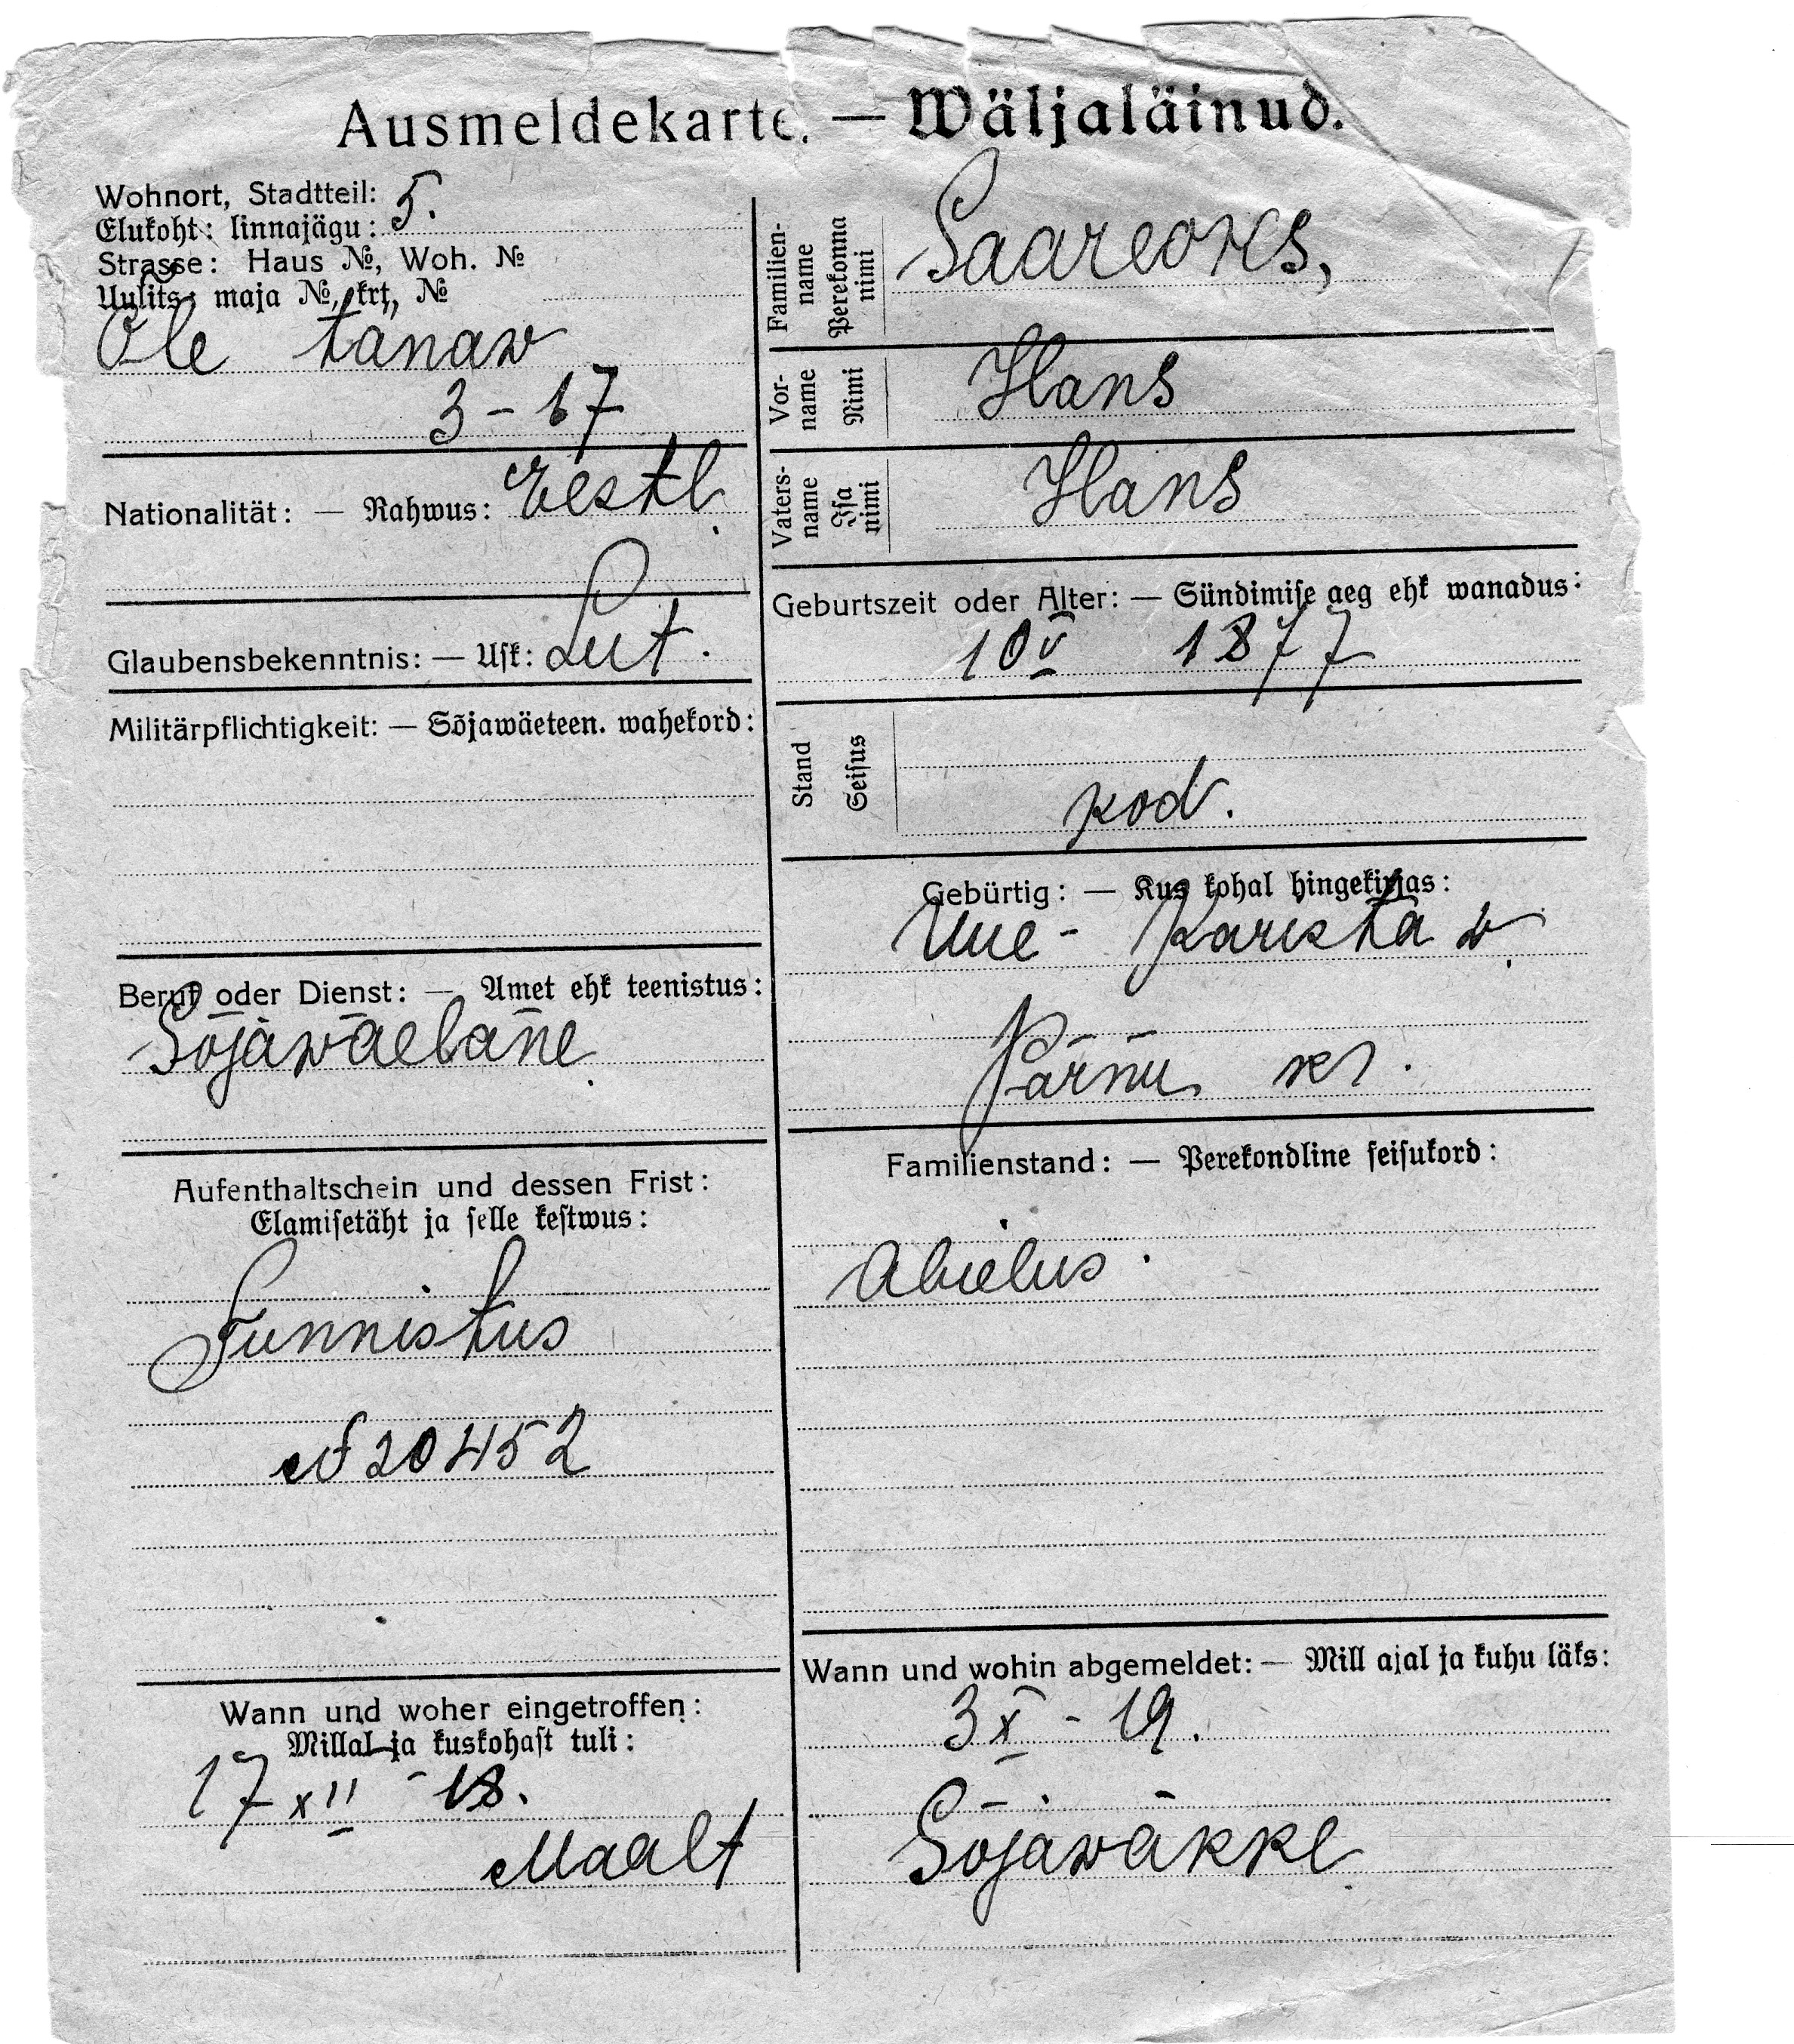 Ausmeldekarte. — Wäljaläinud.
Wohnort, Stadtteil: 5.
Elukoht: linnajägu:
Strasse: Haus №, Woh. №
Uulits: maja №, krt, №
Õle tänaw
3 - 17
Nationalität: — Rahwus: Eestl.
Glaubensbekenntnis: — Usk: Lut.
Militärpflichtigkeit: — Sõjawäeteen. wahekord:
Beruf oder Dienst: — Amet ehk teenistus:
Sõjawäelane
Aufenthaltschein und dessen Frist:
Elamisetäht ja selle kestwus:
Tunnistus
№ 20452
Wann und woher eingetroffen:
Millal ja kuskohast tuli:
17 XII - 18.
Maalt
Familien-
name
Perekonna
nimi
Saareoks,
Vor-
name
Nimi
Hans
Vaters-
name
Isa
nimi
Hans
Geburtszeit oder Alter: — Sündimise aeg ehk wanadus:
10 V 1877
Stand
Seisus
kod.
Gebürtig: — Kus kohal hingekirjas:
Uue-Karista w
Pärnu kr.
Familienstand: — Perekondline seisukord:
Abielus.
Wann und wohin abgemeldet: — Mill ajal ja kuhu läks:
3 X - 19.
Sõjawäkke